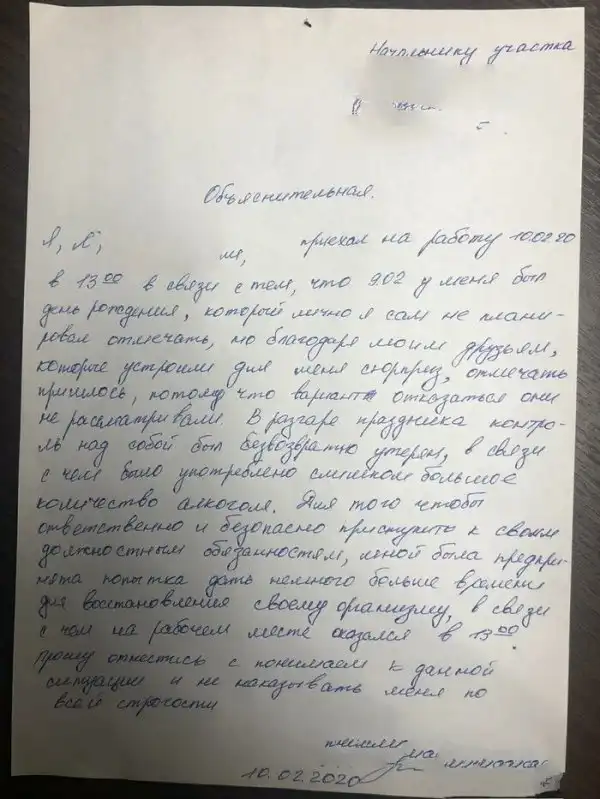 Начальнику участка
Объяснительная.
Я, приехал на работу 10.02.20
в 13⁰⁰ в связи с тем, что 9.02 у меня был
день рождения, который лично я сам не плани-
ровал отмечать, но благодаря моим друзьям,
которые устроили для меня сюрприз, отмечать
пришлось, потому что вариант отказаться они
не рассматривали. В разгаре праздника контро-
ль над собой был безвозвратно утерен, в связи
с чем было употреблено слишком большое
количество алкоголя. Для того чтобы
ответственно и безопасно приступить к своим
должностным обязанностям, мной была предпри-
нята попытка дать немного больше времени
для восстановления своему организму, в связи
с чем на рабочем месте оказался в 13⁰⁰.
Прошу отнестись с пониманием к данной
ситуации и не наказывать меня по
всей строгости
10.02.2020